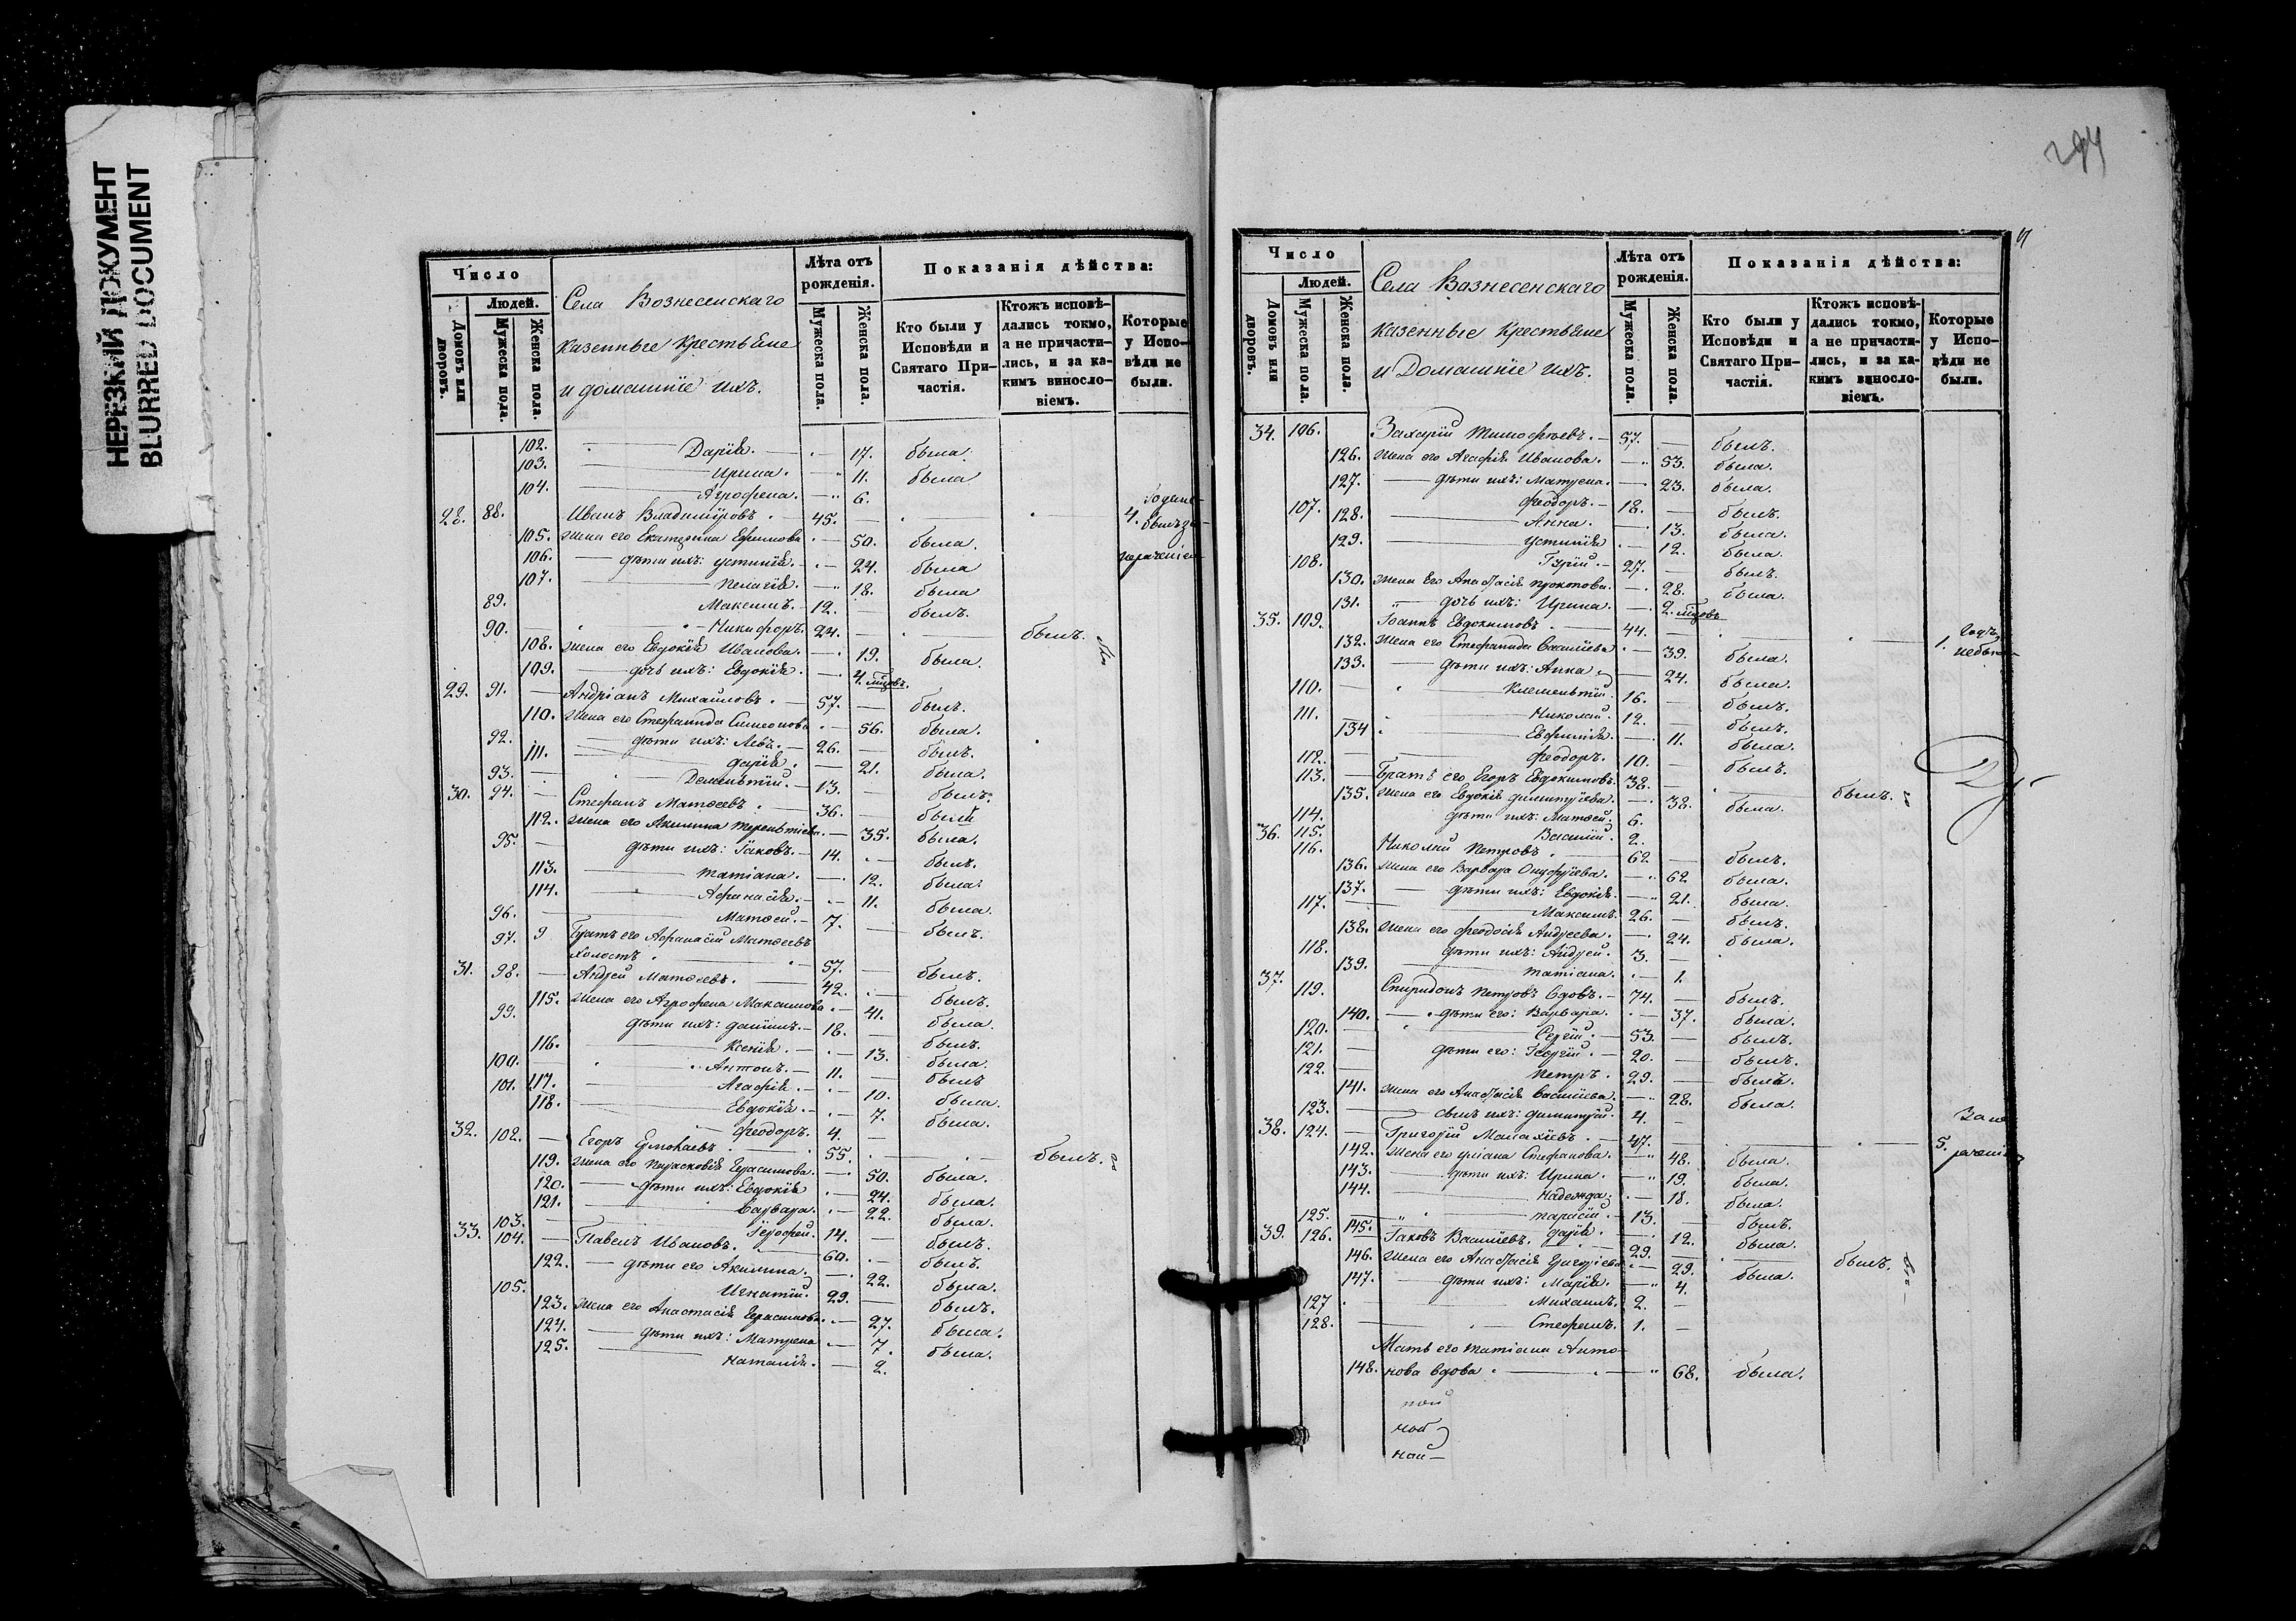 НЕРЕЗКИЙ ДОКУМЕНТ
BLURRED DOCUMENT
Число
Людей.
Домовъ или дворовъ.
Мужеска пола.
Женска пола.
Села Вознесенскаго
казенные крестьяне
и домашніе ихъ.
Лѣта отъ рожденія.
Мужеска пола.
Женска пола.
Показанія дѣйства:
Кто были у Исповѣди и Святаго Причастія.
Ктожъ исповѣдались токмо, а не причастились, и за какимъ винословіемъ.
Которые у Исповѣди не были.
102. Дарія. 17. была.
103. Ирина. 11. была
104. Агрофена. 6.
28. 88. Иванъ Владиміровъ. 45. 4.
105. жена его Екатерина Ефимова 50. была.
106. дѣти ихъ: Устинія. 24. была
107. Пелагія. 18. была
89. Максимъ. 12. былъ.
90. Никифоръ. 24. былъ.
108. жена его Евдокія Иванова. 19. была.
109. дочь ихъ: Евдокія. 4.
29. 91. Андріанъ Михайловъ. 57. былъ.
110. жена его Стефанида Симеонова 56. была.
92. дѣти ихъ: Левъ. 26. былъ.
111. Дарія. 21. была.
93. Дементій. 13. былъ.
30. 94. Стефанъ Матѳеевъ. 36. былъ
112. жена его Акилина Терентіева. 35. была.
95. дѣти ихъ: Іаковъ. 14. былъ.
113. Татіана. 12. была.
114. Афанасія. 11. была.
96. Матѳей. 7. былъ.
97. 9 Братъ его Афанасій Матѳеевъ
холостъ 57. былъ.
31. 98. Андрей Матѳеевъ. 42. былъ.
115. жена его Агрофена Максимова 41. была.
99. дѣти ихъ: Даніилъ. 18. былъ.
116. Ксенія. 13. была.
100. Антонъ. 11. былъ
117. Агафія. 10. была.
118. Евдокія. 7. была.
101. Феодоръ. 4.
32. 102. Егоръ 55. былъ.
119. жена его Парасковія Герасимова. 50. была.
120. дѣти ихъ: Евдокія 24. была.
121. Варвара. 22. была.
103. Іерофей. 14. былъ.
33. 104. Павелъ Ивановъ. 60. былъ.
122. дѣти его Акилина. 22. была.
105. Игнатій. 29. былъ.
123. жена его Анастасія Герасимова. 27. была.
124. дѣти ихъ: Матрена 7. была.
125. Наталія. 2.
Число
Людей.
Домовъ или дворовъ.
Мужеска пола.
Женска пола.
Села Вознесенскаго
казенные крестьяне
и Домашніе ихъ.
Лѣта отъ рожденія.
Мужеска пола.
Женска пола.
Показанія дѣйства:
Кто были у Исповѣди и Святаго Причастія.
Ктожъ исповѣдались токмо, а не причастились, и за какимъ винословіемъ.
Которые у Исповѣди не были.
34. 106. Захарій Тимофѣевъ. 57. былъ.
126. жена его Агафія Иванова. 53. была.
127. дѣти ихъ: Матрена. 23. была.
107. Феодоръ. 18. былъ.
128. Анна. 13. была.
129. Устинія 12. была.
108. Гурій. 27. былъ.
130. жена Его Анастасія Прокопова. 28. была.
131. дочь ихъ: Ирина. 2.
35. 109. Іоаннъ Евдокимовъ. 44. 1.
132. жена его Стефанида Василіева 39. была.
133. дѣти ихъ: Анна 24. была.
110. Клементій. 16. былъ.
111. Николай. 12. былъ.
134 Евфимія. 11. была.
112. Феодоръ. 10. былъ.
113. Братъ его Егоръ Евдокимовъ. 38. былъ.
135. жена его Евдокія Димитріева. 38. была.
114. дѣти ихъ: Матѳей. 6.
115. Василій. 2.
36. 116. Николай Петровъ. 62 былъ.
136. жена его Варвара Онуфріева. 62 была.
137. дѣти ихъ: Евдокія. 21. была.
117. Максимъ. 26. былъ.
138. жена его Феодосія Андреева. 24. была.
118. дѣти ихъ: Андрей. 3.
139. Татіана. 1.
37. 119. Спиридонъ Петровъ вдовъ. 74. былъ.
140. дѣти его: Варвара. 37. была.
120. Сергій. 53. былъ.
121. дѣти его: Георгій. 20. былъ.
122. Петръ. 29. былъ.
141. жена его Анастасія Василіева. 28. была.
123. сынъ ихъ: Димитрій. 4.
38. 124. Григорій Малахіевъ. 47. 5.
142. жена его Уліана Стефанова. 48. была.
143. дѣти ихъ: Ирина. 19. была.
144. Надежда. 18. была.
125. Тарасій. 13. былъ.
145. Дарія. 12. была.
39. 126. Іаковъ Василіевъ. 29. былъ.
146. жена его Анастасія Григоріева 29. была.
147. дѣти ихъ: Марія. 4.
127 Михаилъ. 2.
128. Стефанъ. 1.
Мать его Татіана Анто-
148. нова вдова 68. была.